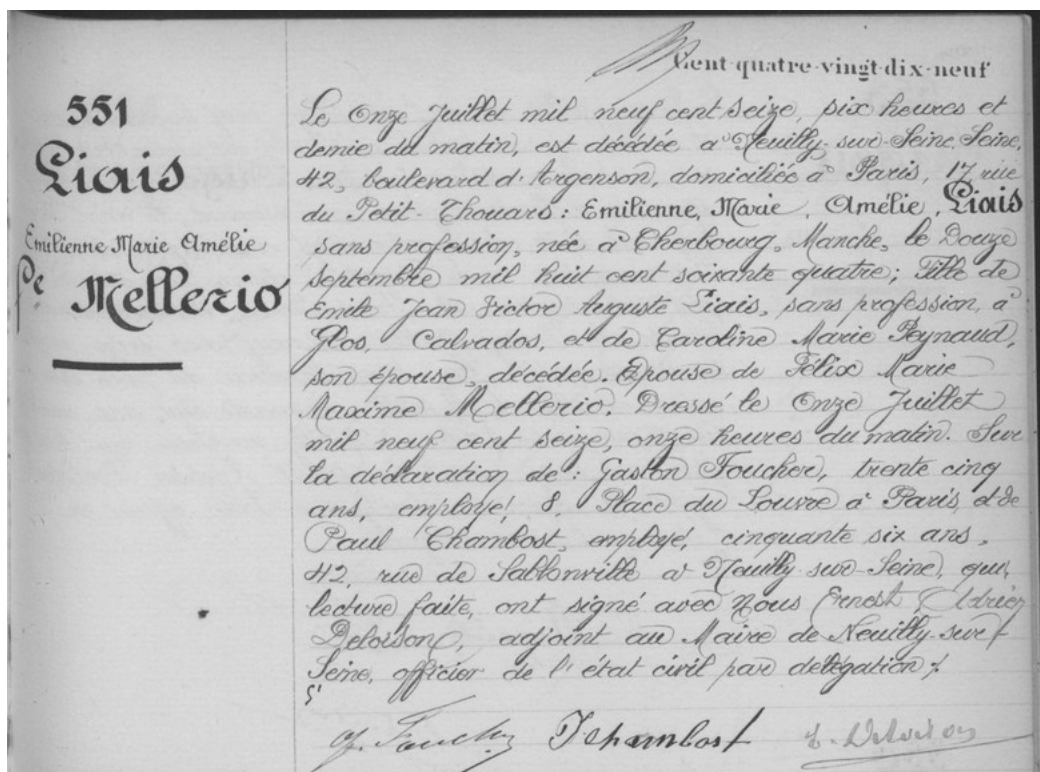 Cent-quatre-vingt-dix-neuf
551
Liais
Emilienne Marie Amélie
Pe Mellerio
Le Onze Juillet mil neuf cent seize, six heures et
demie du matin, est décédée à Neuilly-sur-Seine, Seine,
42, boulevard d'Argenson, domiciliée à Paris, 17 rue
du Petit-Thouars : Emilienne, Marie, Amélie, Liais
sans profession, née à Cherbourg, Manche, le Douze
septembre mil huit cent soixante quatre ; Fille de
Emile Jean Victor Auguste Liais, sans profession, à
Glos, Calvados, et de Caroline Marie Peynaud,
son épouse, décédée. Epouse de Félix Marie
Maxime Mellerio. Dressé le Onze Juillet
mil neuf cent seize, onze heures du matin. Sur
la déclaration de : Gaston Foucher, trente cinq
ans, employé, 8, Place du Louvre à Paris, et de
Paul Chambost, employé, cinquante six ans,
42, rue de Sablonville à Neuilly-sur-Seine, qui,
lecture faite, ont signé avec Nous Ernest Adrien
Deloison, adjoint au Maire de Neuilly-sur-
Seine, officier de l'état civil par délégation ./.
G. Foucher P Chambost E. Deloison